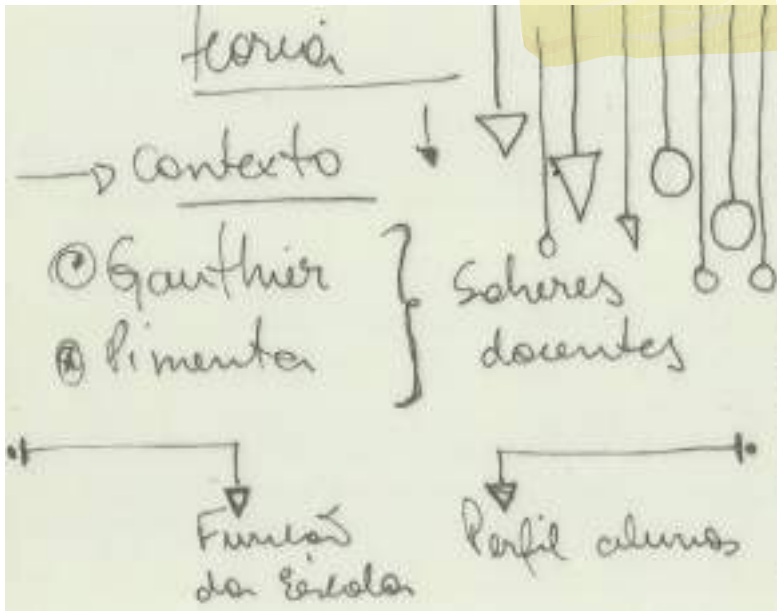 teoria
Contexto
Gauthier
Pimenta
Saberes
docentes
Função
da Escola
Perfil alunos